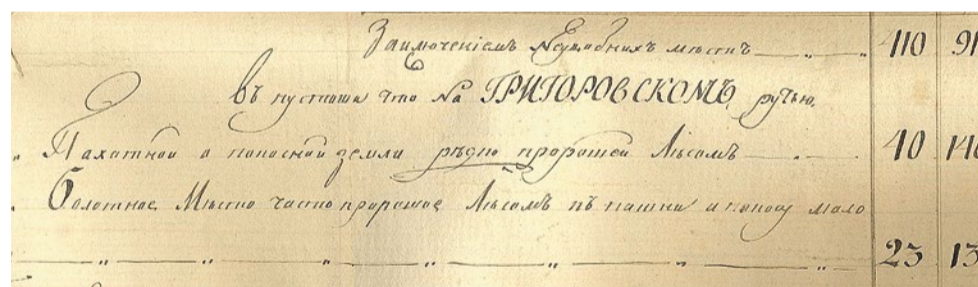 Заключенiемъ Неудобныхъ мѣстъ — „ „ 110 91
Въ пустоши что На ГРИГОРОВСКОМЪ ручью.
„ Пахатной и покосной земли рѣдко проросшей Лѣсомъ — „ — 40 140
Болотное Мѣсто часто проросшое Лѣсомъ къ пашни и покосу мало
— „ — „ — „ — „ — „ — „ — „ 23 13